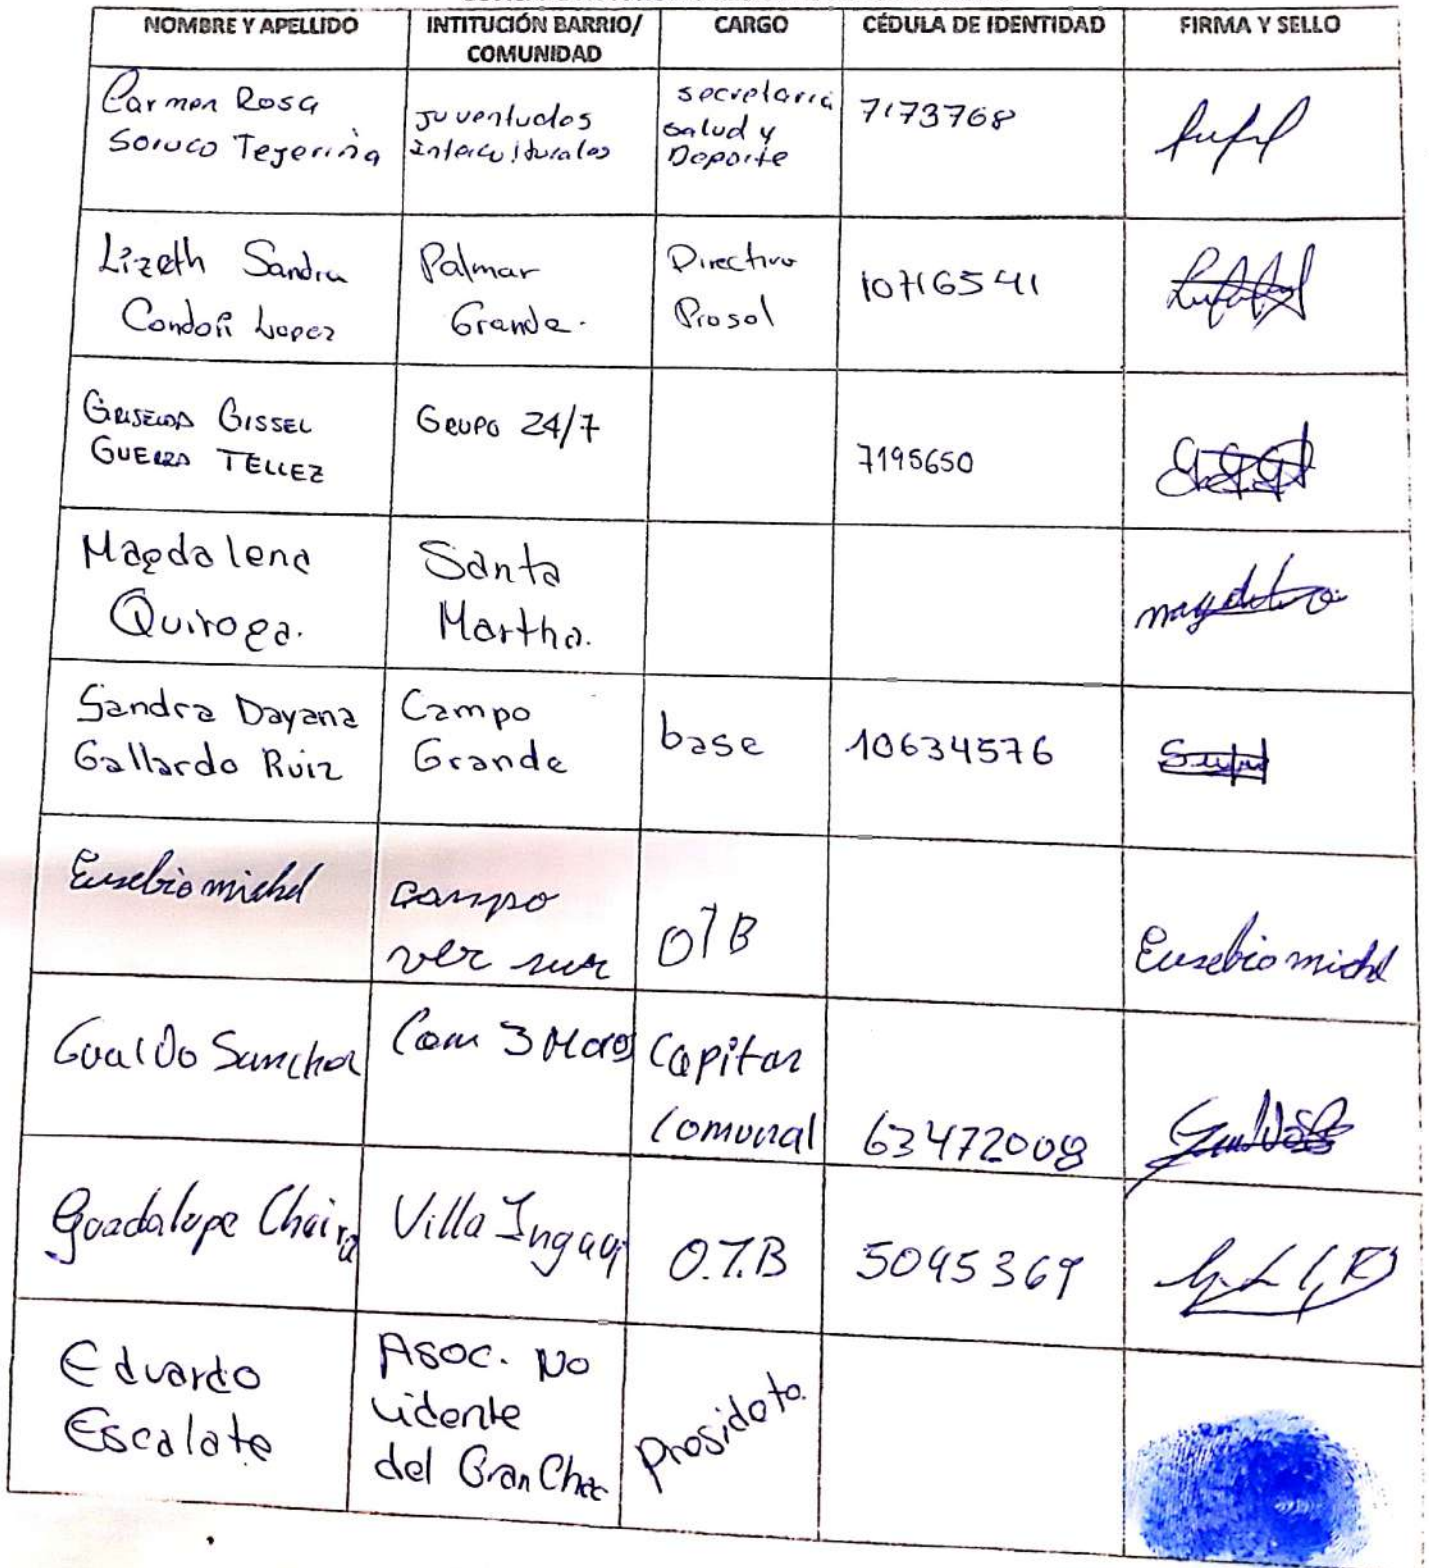 NOMBRE Y APELLIDO
INTITUCIÓN BARRIO/
COMUNIDAD
CARGO
CÉDULA DE IDENTIDAD
FIRMA Y SELLO
Carmen Rosa
Soruco Tejerina
Juventudes
Interculturales
secretaria
salud y
Deporte
7173768
Lizeth Sandra
Condori Lopez
Palmar
Grande.
Directiva
Prosol
10716541
GRISELDA GISSEL
GUERRA TELLEZ
GRUPO 24/7
7195650
Magdalena
Quiroga.
Santa
Martha.
magdalena
Sandra Dayana
Gallardo Ruiz
Campo
Grande
base
10634576
Eusebio michel
campo
ver sur
OTB
Eusebio michel
Gualdo Sanchez
Com 3
Capitan
Comunal
63472008
Guadalupe Chaira
Villa Ingavi
O.T.B
5045369
Eduardo
Escalate
Asoc. No
Vidente
del Gran Chac
Presidete